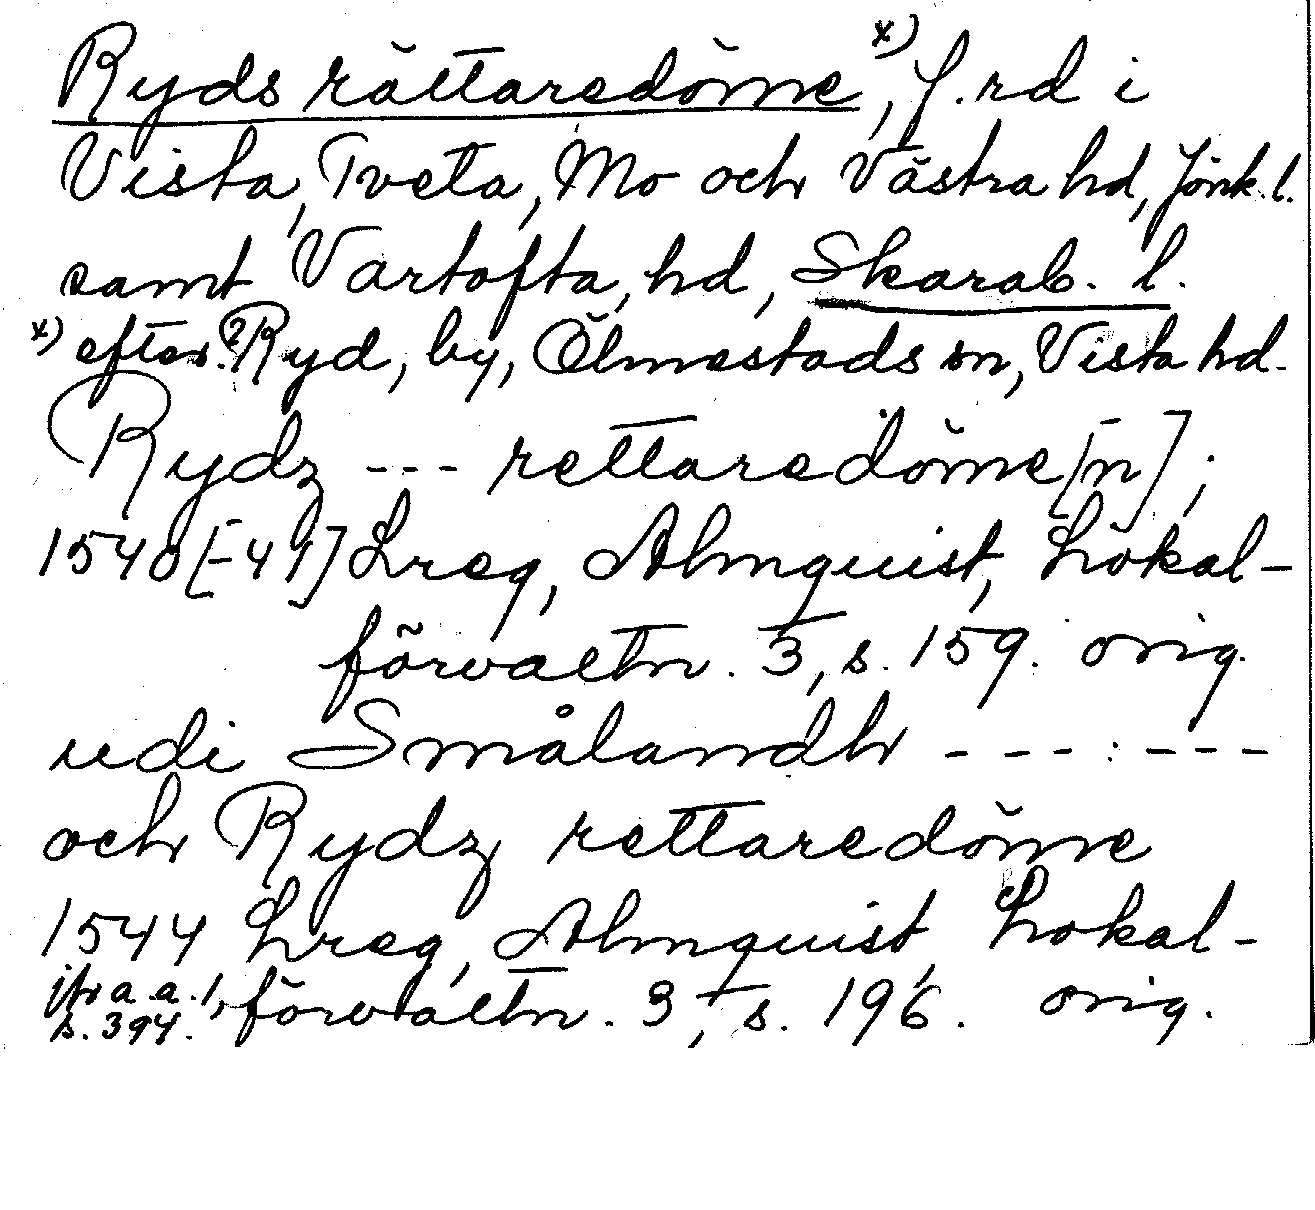 Ryds rättaredöme x), f.rd i
Vista, Tveta, Mo och Västra hd, Jönk. l.
samt Vartofta, hd, Skarab. l.
x) efter ? Ryd, by, Ölmestads sn, Vista hd.
Rydz --- rettaredöme[n];
1540[-41] Lreg, Almquist, Lokal-
förvaltn. 3, s. 159. orig.
udi Smålandh --- : ---
och Rydz rettaredöme
1544 Lreg, Almquist, Lokal-
förvaltn. 3, s. 196. orig.
jfr a. a. 1,
s. 394.